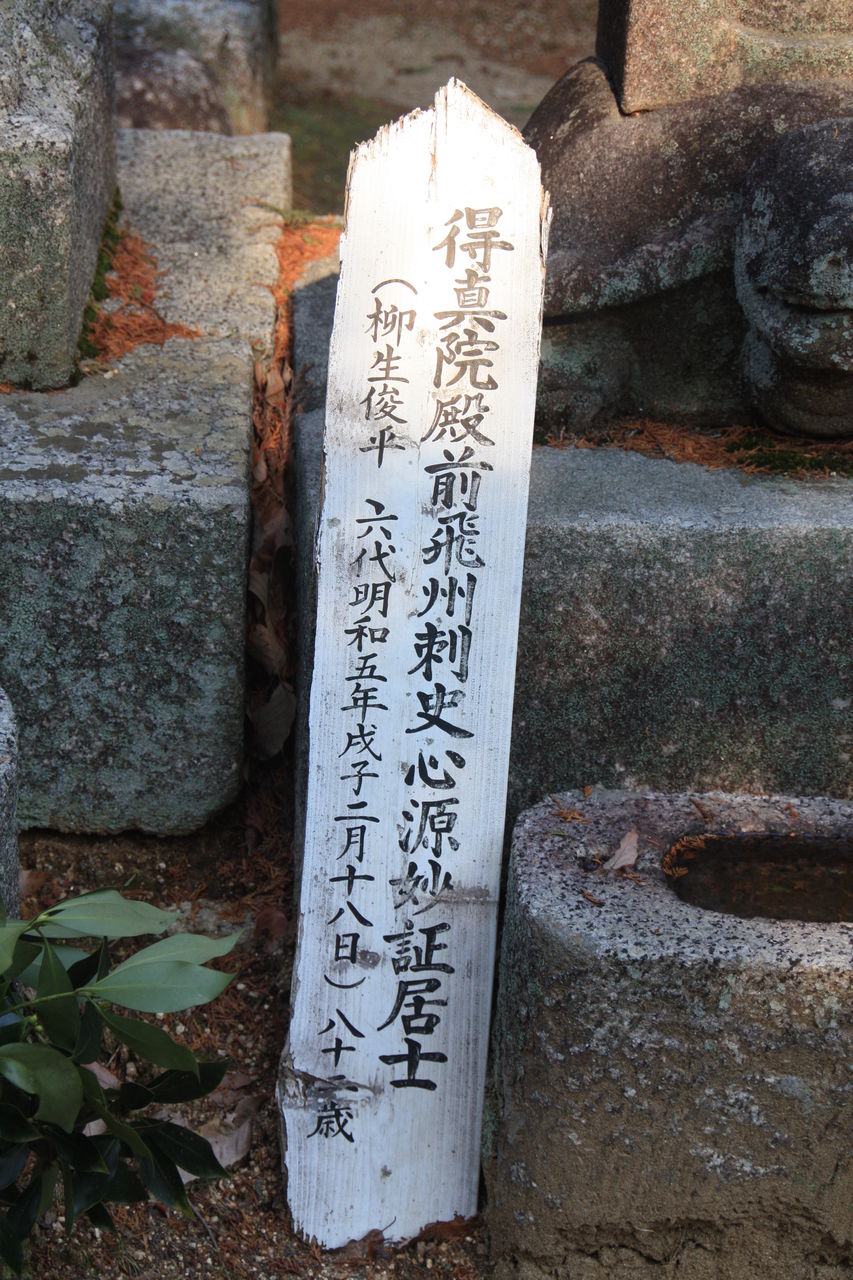 得真院殿前飛州刺史心源妙証居士
（柳生俊平 六代明和五年戌子二月十八日）八十二歳